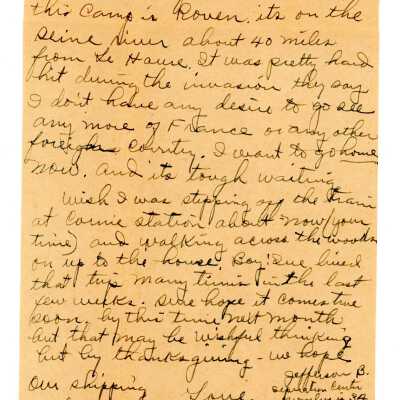 this Camp is Roven. its on the
seine river about 40 miles
from Le Havre. It was pretty hard
hit during the invasion they say
I don't have any desire to go see
any more of France or any other
foreign Corntry. I want to go home
now. And its tough waiting
Wish I was stepping off the train
at station about "now (your
time) and walking across the woods
on up to the house. Boy, I've lived
that trip many times in the last
few weeks. Sure hope it comes true
soon. by this time next month
but that may be wishful thinking
but by thanksgiving - we hope
Jefferson B.
Our shipping
separation Center
Love,